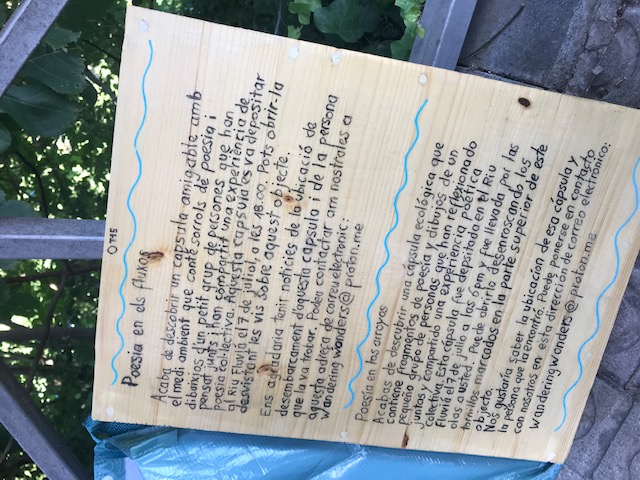 O TMS
Poesia en els fluxos
Acaba de descobrir un càpsula amigable amb
el medi ambient que conté sorrols de poesia i
dibuixos d'un petit grup de persones que han
pensat junts i han compartit una experiència de
poesia col·lectiva. Aquesta càpsula es va depositar
al Riu Fluvià el 7 de juliol, a les 18.00. Pots obrir-la
desvistant les vis sobre aquest objecte.
Ens agradaria tenir notícies de la ubicació de
desembarcament d'aquesta càpsula i de la persona
que la va trobar. Podeu contactar am nostrales a
aquesta adreça de correu electronic:
wandering.wonders@proton.me
Poesia en los arroyos
Acabas de descubrir una cápsula ecológica que
contiene fragmentos de poesía y dibujos de un
pequeño grupo de personas que han reflexionado
juntas y compartido una experiencia poética
colectiva. Esta cápsula fue depositada en el Riu
Fluvià el 7 de julio a las 6pm y fue llevada por las
olas a usted. Puede abrirlo desenroscando los
tornillos marcados en la parte superior de este
objecto.
Nos gustaría saber la ubicación de esa cápsula y
la persona que la encontró. Puede ponerse en contacto
con nosotros en esta dirección de correo electrónico:
wandering.wonders@proton.me